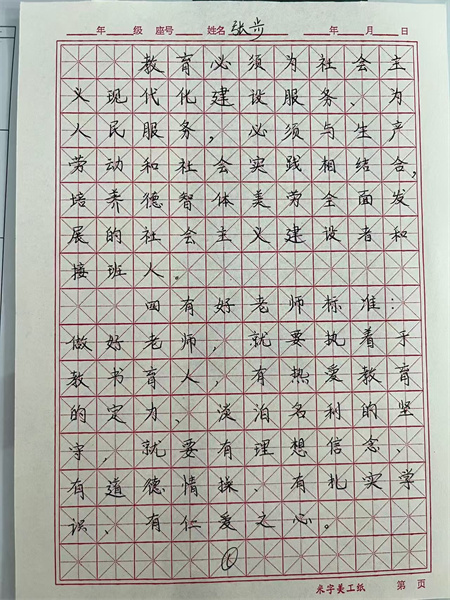 年 级 座号 姓名 张步 年 月 日
教育必须为社会主
义现代化建设服务、为
人民服务，必须与生产
劳动和社会实践相结合，
培养德智体美劳全面发
展的社会主义建设者和
接班人。
四有好老师标准：
做好老师，就要执着于
教书育人，有热爱教育
的定力、淡泊名利的坚
守，就要有理想信念、
有道德情操、有扎实学
识、有仁爱之心。
⑥
米字美工纸 第 页